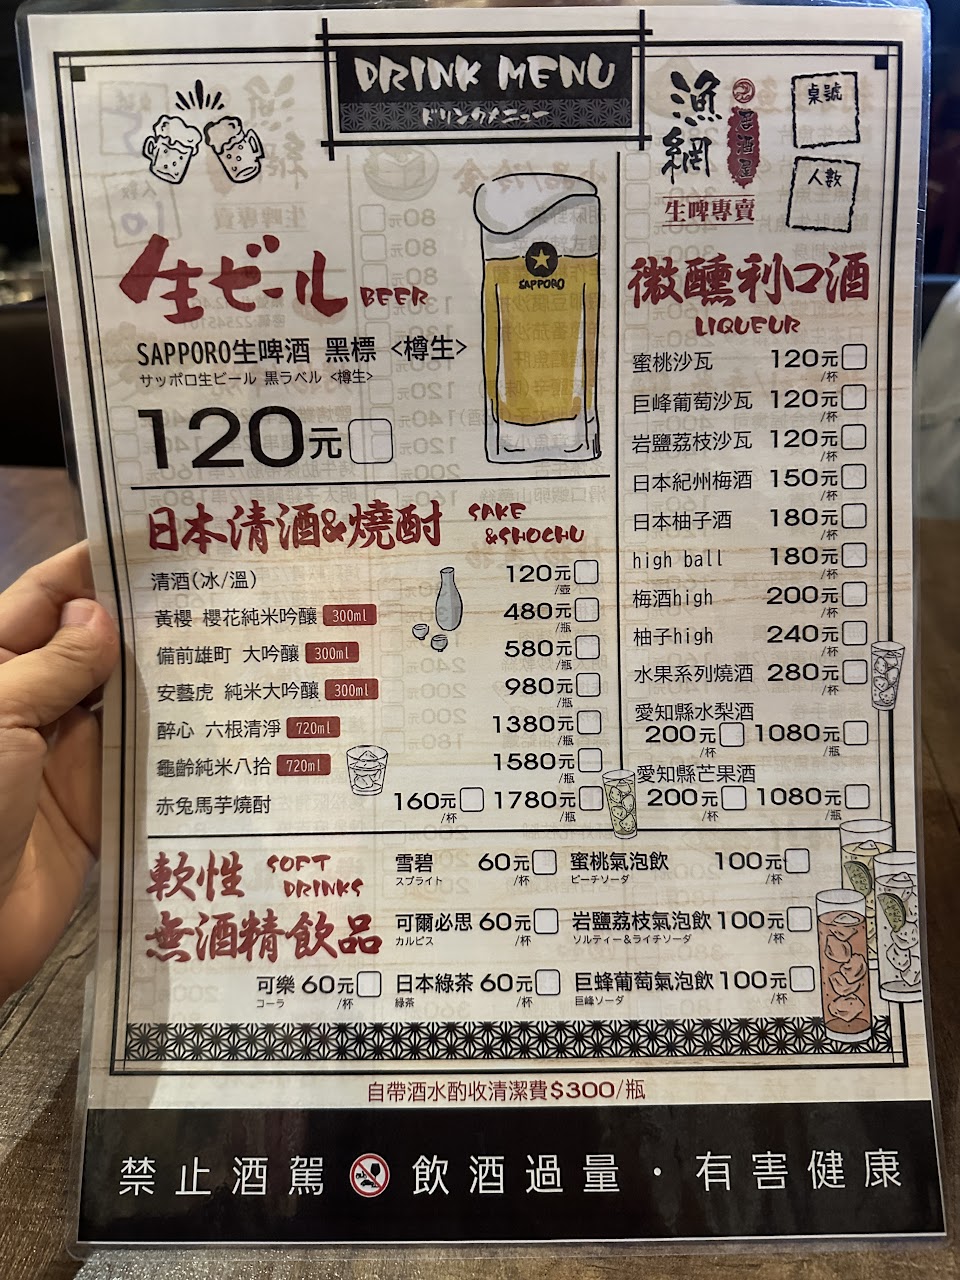 DRINK MENU
ドリンクメニュー
漁網
居酒屋
生啤專賣
桌號
人數
生ビール BEER
SAPPORO生啤酒 黑標 <樽生>
サッポロ生ビール 黒ラベル <樽生>
120元
SAPPORO
日本清酒&燒酎 SAKE &SHOCHU
清酒(冰/溫) 120元/壺
黃櫻 櫻花純米吟釀 300ml 480元/瓶
備前雄町 大吟釀 300ml 580元/瓶
安藝虎 純米大吟釀 300ml 980元/瓶
醉心 六根清淨 720ml 1380元/瓶
龜齡純米八拾 720ml 1580元/瓶
赤兔馬芋燒酎 160元/杯 1780元/瓶
微醺利口酒
LIQUEUR
蜜桃沙瓦 120元/杯
巨峰葡萄沙瓦 120元/杯
岩鹽荔枝沙瓦 120元/杯
日本紀州梅酒 150元/杯
日本柚子酒 180元/杯
high ball 180元/杯
梅酒high 200元/杯
柚子high 240元/杯
水果系列燒酒 280元/杯
愛知縣水梨酒
200元/杯 1080元/瓶
愛知縣芒果酒
200元/杯 1080元/瓶
軟性 SOFT DRINKS
無酒精飲品
雪碧 60元/杯 蜜桃氣泡飲 100元/杯
スプライト ピーチソーダ
可爾必思 60元/杯 岩鹽荔枝氣泡飲 100元/杯
カルピス ソルティー&ライチソーダ
可樂 60元/杯 日本綠茶 60元/杯 巨蜂葡萄氣泡飲 100元/杯
コーラ 緑茶 巨峰ソーダ
自帶酒水酌收清潔費$300/瓶
禁止酒駕 飲酒過量・有害健康